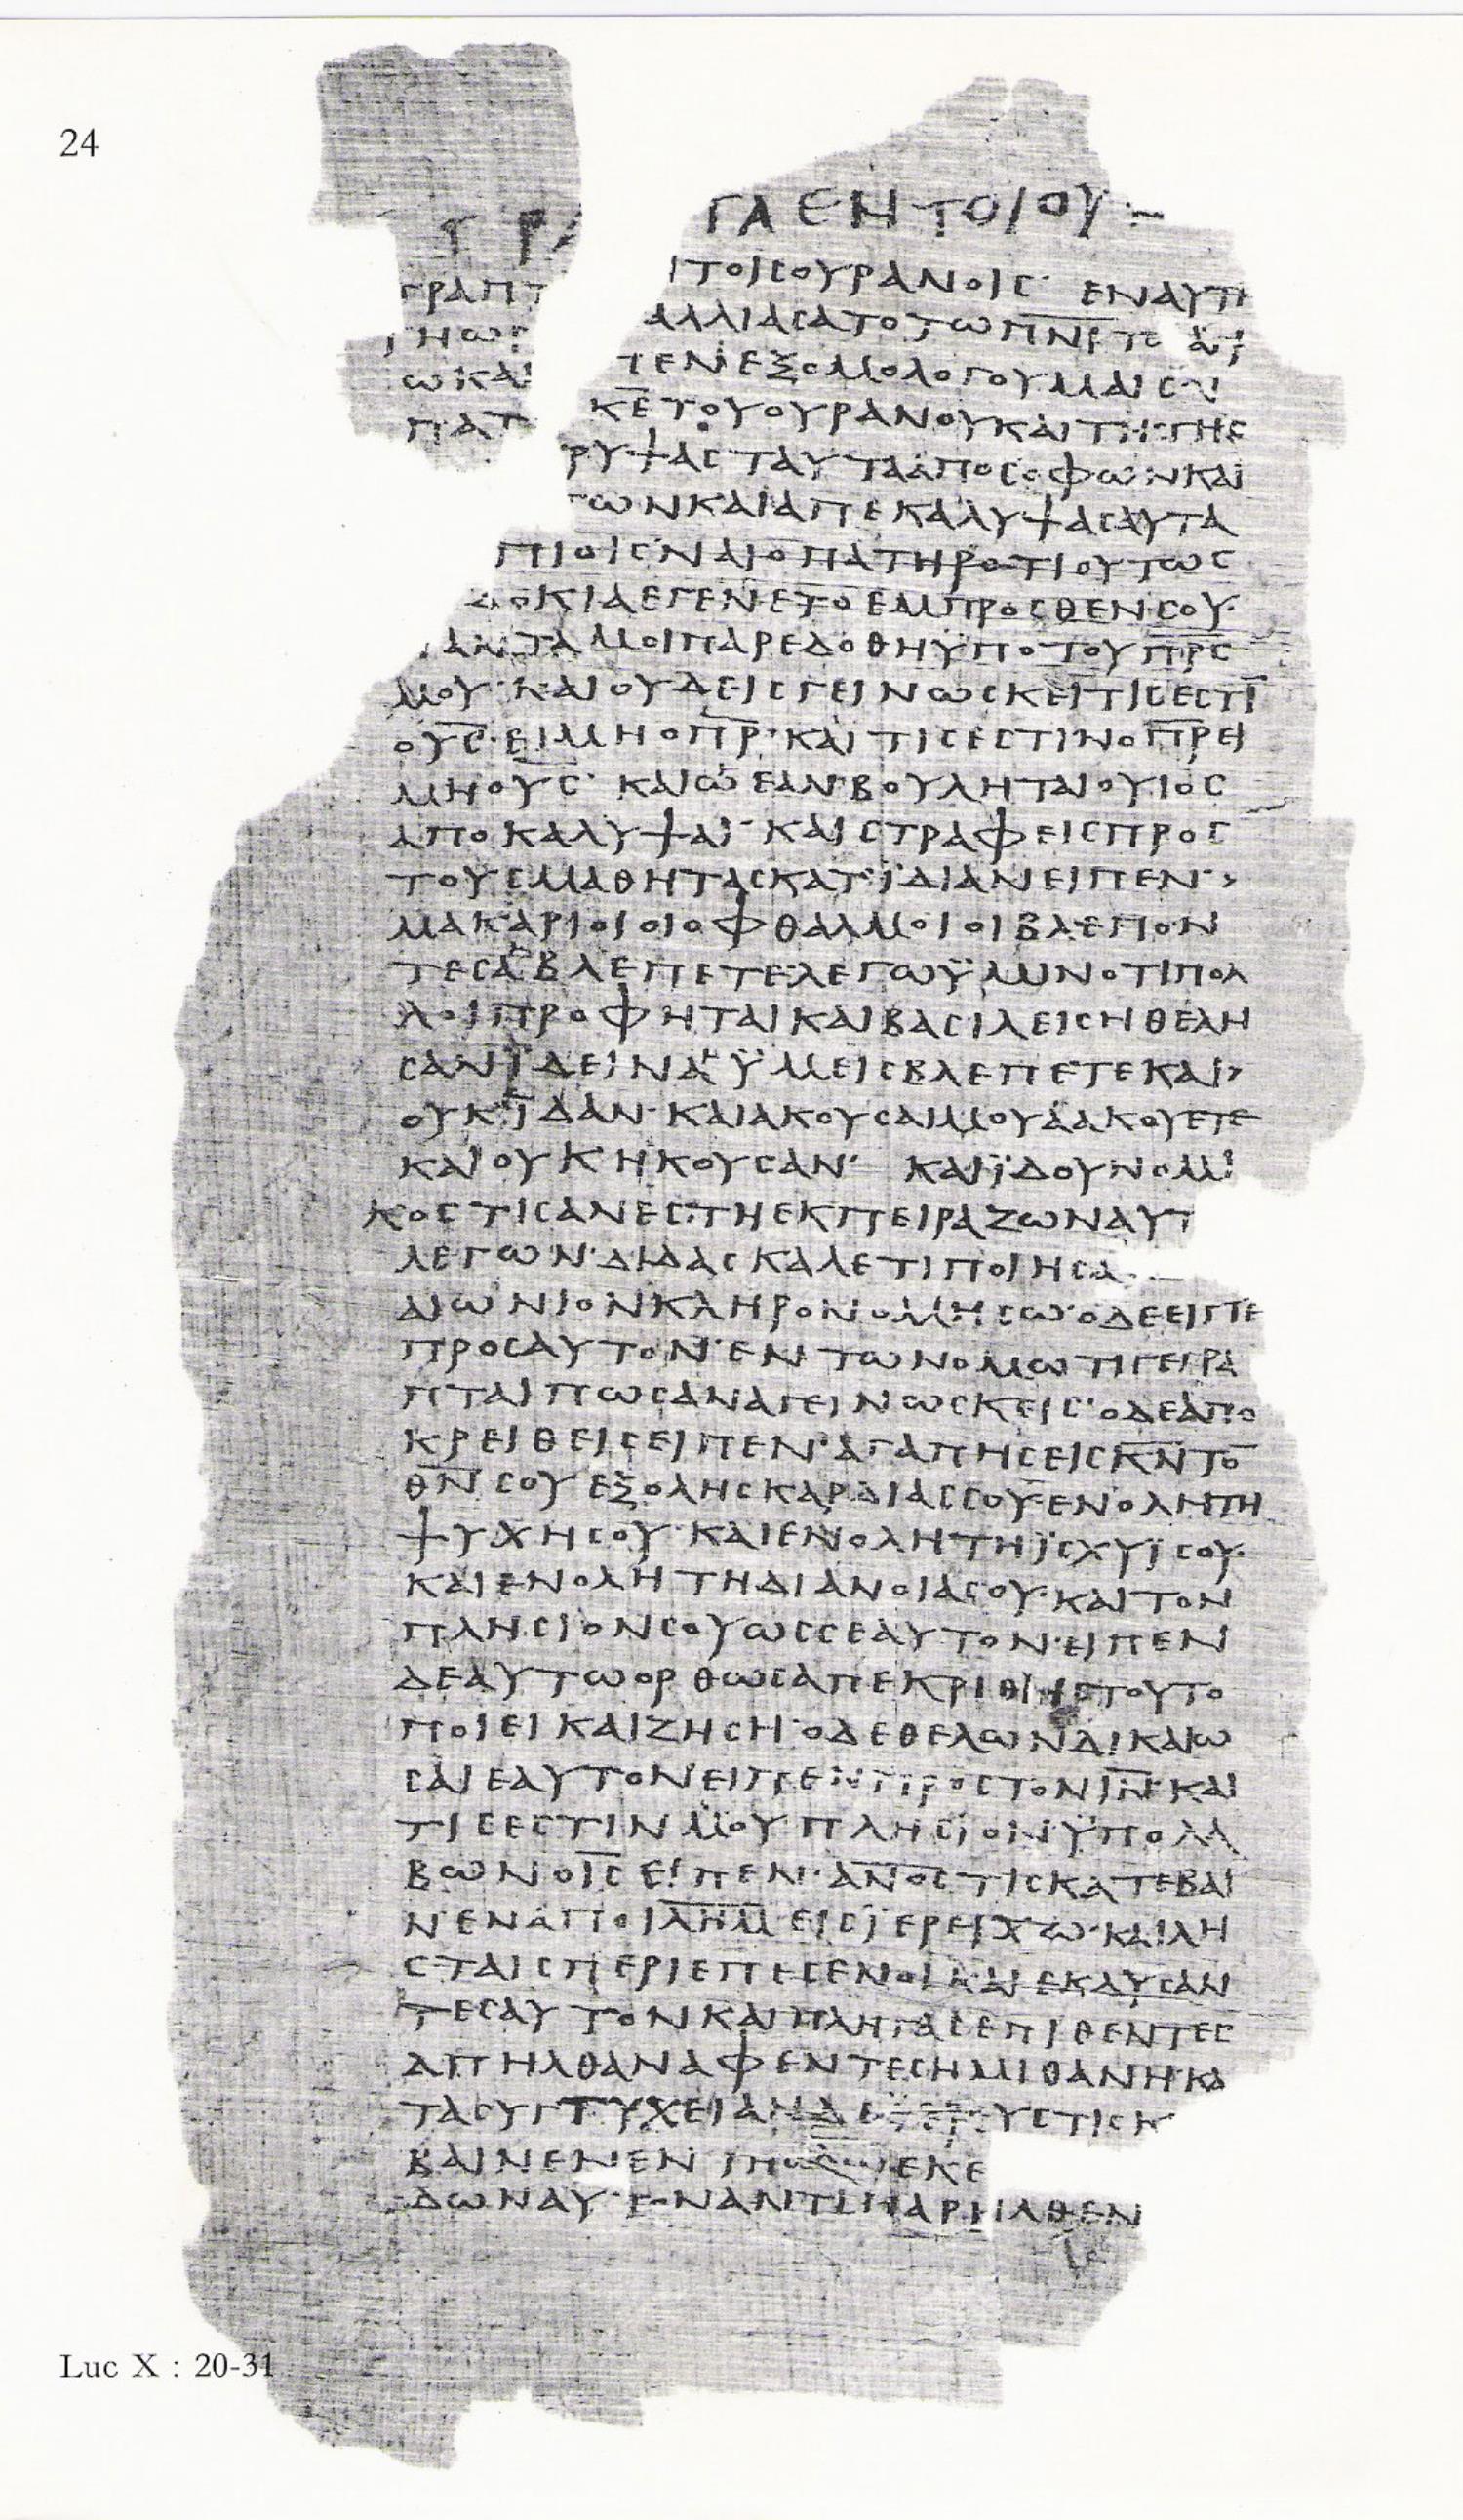 24
ΓΑ ΕΝ ΤΟΙΟΥ
ΓΡΑΠΤ ΙΤΟΙϹΟΥΡΑΝΟΙϹ· ΕΝΑΥΤΗ
ΤΗΩΡ ΑΛΛΙΑϹΑΤΟΤΩΠΝΙΤΩ
ΩΚΑΙ ΤΕΝΕΞΟΜΟΛΟΓΟΥΜΑΙϹΟΙ
ΠΑΤ ΚΕΤΟΥΟΥΡΑΝΟΥΚΑΙΤΗϹΓΗϹ
ΡΥΨΑϹΤΑΥΤΑΑΠΟϹΟΦΩΝΚΑΙ
ΤΩΝΚΑΙΑΠΕΚΑΛΥΨΑϹΑΥΤΑ
ΠΙΟΙϹΝΑΙΟΠΑΤΗΡΟΤΙΟΥΤΩϹ
ΔΟΚΙΑΕΓΕΝΕΤΟΕΜΠΡΟϹΘΕΝϹΟΥ·
ΑΝΤΑΜΟΙΠΑΡΕΔΟΘΗΫΠΟΤΟΥΠΡϹ
ΜΟΥ·ΚΑΙΟΥΔΕΙϹΓΕΙΝΩϹΚΕΙΤΙϹΕϹΤΙ
ΟΥϹ·ΕΙΜΗΟΠΡ·ΚΑΙΤΙϹΕϹΤΙΝΟΠΡΕΙ
ΜΗΟΥϹ· ΚΑΙΩΕΑΝΒΟΥΛΗΤΑΙΟΥΙΟϹ
ΑΠΟΚΑΛΥΨΑΙ· ΚΑΙϹΤΡΑΦΕΙϹΠΡΟϹ
ΤΟΥϹΜΑΘΗΤΑϹΚΑΤΪΔΙΑΝΕΙΠΕΝ·>
ΜΑΚΑΡΙΟΙΟΙΟΦΘΑΛΜΟΙΟΙΒΛΕΠΟΝ
ΤΕϹΑΒΛΕΠΕΤΕ·ΛΕΓΩΫΜΙΝΟΤΙΠΟΛ
ΛΟΙΠΡΟΦΗΤΑΙΚΑΙΒΑϹΙΛΕΙϹΗΘΕΛΗ
ϹΑΝΪΔΕΙΝΑΫΜΕΙϹΒΛΕΠΕΤΕΚΑΙ>
ΟΥΚΪΔΑΝ·ΚΑΙΑΚΟΥϹΑΙΜΟΥΑΑΚΟΥΕΤΕ
ΚΑΙΟΥΚΗΚΟΥϹΑΝ· ΚΑΙΪΔΟΥΝΟΜΙ
ΚΟϹΤΙϹΑΝΕϹΤΗΕΚΠΕΙΡΑΖΩΝΑΥΤ
ΛΕΓΩΝ·ΔΙΔΑϹΚΑΛΕΤΙΠΟΙΗϹΑ
ΑΙΩΝΙΟΝΚΛΗΡΟΝΟΜΗϹΩ·ΟΔΕΕΙΠΕ
ΠΡΟϹΑΥΤΟΝ·ΕΝΤΩΝΟΜΩΤΙΓΕΓΡΑ
ΠΤΑΙΠΩϹΑΝΑΓΕΙΝΩϹΚΕΙϹ·ΟΔΕΑΠΟ
ΚΡΕΙΘΕΙϹΕΙΠΕΝ·ΑΓΑΠΗϹΕΙϹΚΝΤΟ
ΘΝϹΟΥΕΞΟΛΗϹΚΑΡΔΙΑϹϹΟΥ·ΕΝΟΛΗΤΗ
ΨΥΧΗϹΟΥ·ΚΑΙΕΝΟΛΗΤΗΪϹΧΥΪϹΟΥ·
ΚΑΙΕΝΟΛΗΤΗΔΙΑΝΟΙΑϹΟΥ·ΚΑΙΤΟΝ
ΠΛΗϹΙΟΝϹΟΥΩϹϹΕΑΥΤΟΝ·ΕΙΠΕΝ
ΔΕΑΥΤΩΟΡΘΩϹΑΠΕΚΡΙΘΗϹΤΟΥΤΟ
ΠΟΙΕΙΚΑΙΖΗϹΗ·ΟΔΕΘΕΛΩΝΔΙΚΑΙΩ
ϹΑΙΕΑΥΤΟΝΕΙΠΕΝΠΡΟϹΤΟΝΙΗΝΚΑΙ
ΤΙϹΕϹΤΙΝΜΟΥΠΛΗϹΙΟΝΫΠΟΛΑ
ΒΩΝΟΙϹΕΙΠΕΝ·ΑΝΟϹΤΙϹΚΑΤΕΒΑΙ
ΝΕΝΑΠΟΙΛΗΜΕΙϹΪΕΡΕΙΧΩ·ΚΑΙΛΗ
ϹΤΑΙϹΠΕΡΙΕΠΕϹΕΝΟΙΚΑΙΕΚΔΥϹΑΝ
ΤΕϹΑΥΤΟΝΚΑΙΠΛΗΓΑϹΕΠΙΘΕΝΤΕϹ
ΑΠΗΛΘΑΝΑΦΕΝΤΕϹΗΜΙΘΑΝΗΚΑ
ΤΑϹΥΓΤΥΧΕΙΑΝ ΥϹΤΙϹΚ
ΒΑΙΝΕΝΕΝ ΕΚΕ
ΔΩΝΑΥ ΝΑΝΤΙΠΑΡΗΛΘΕΝ
Luc X : 20-31